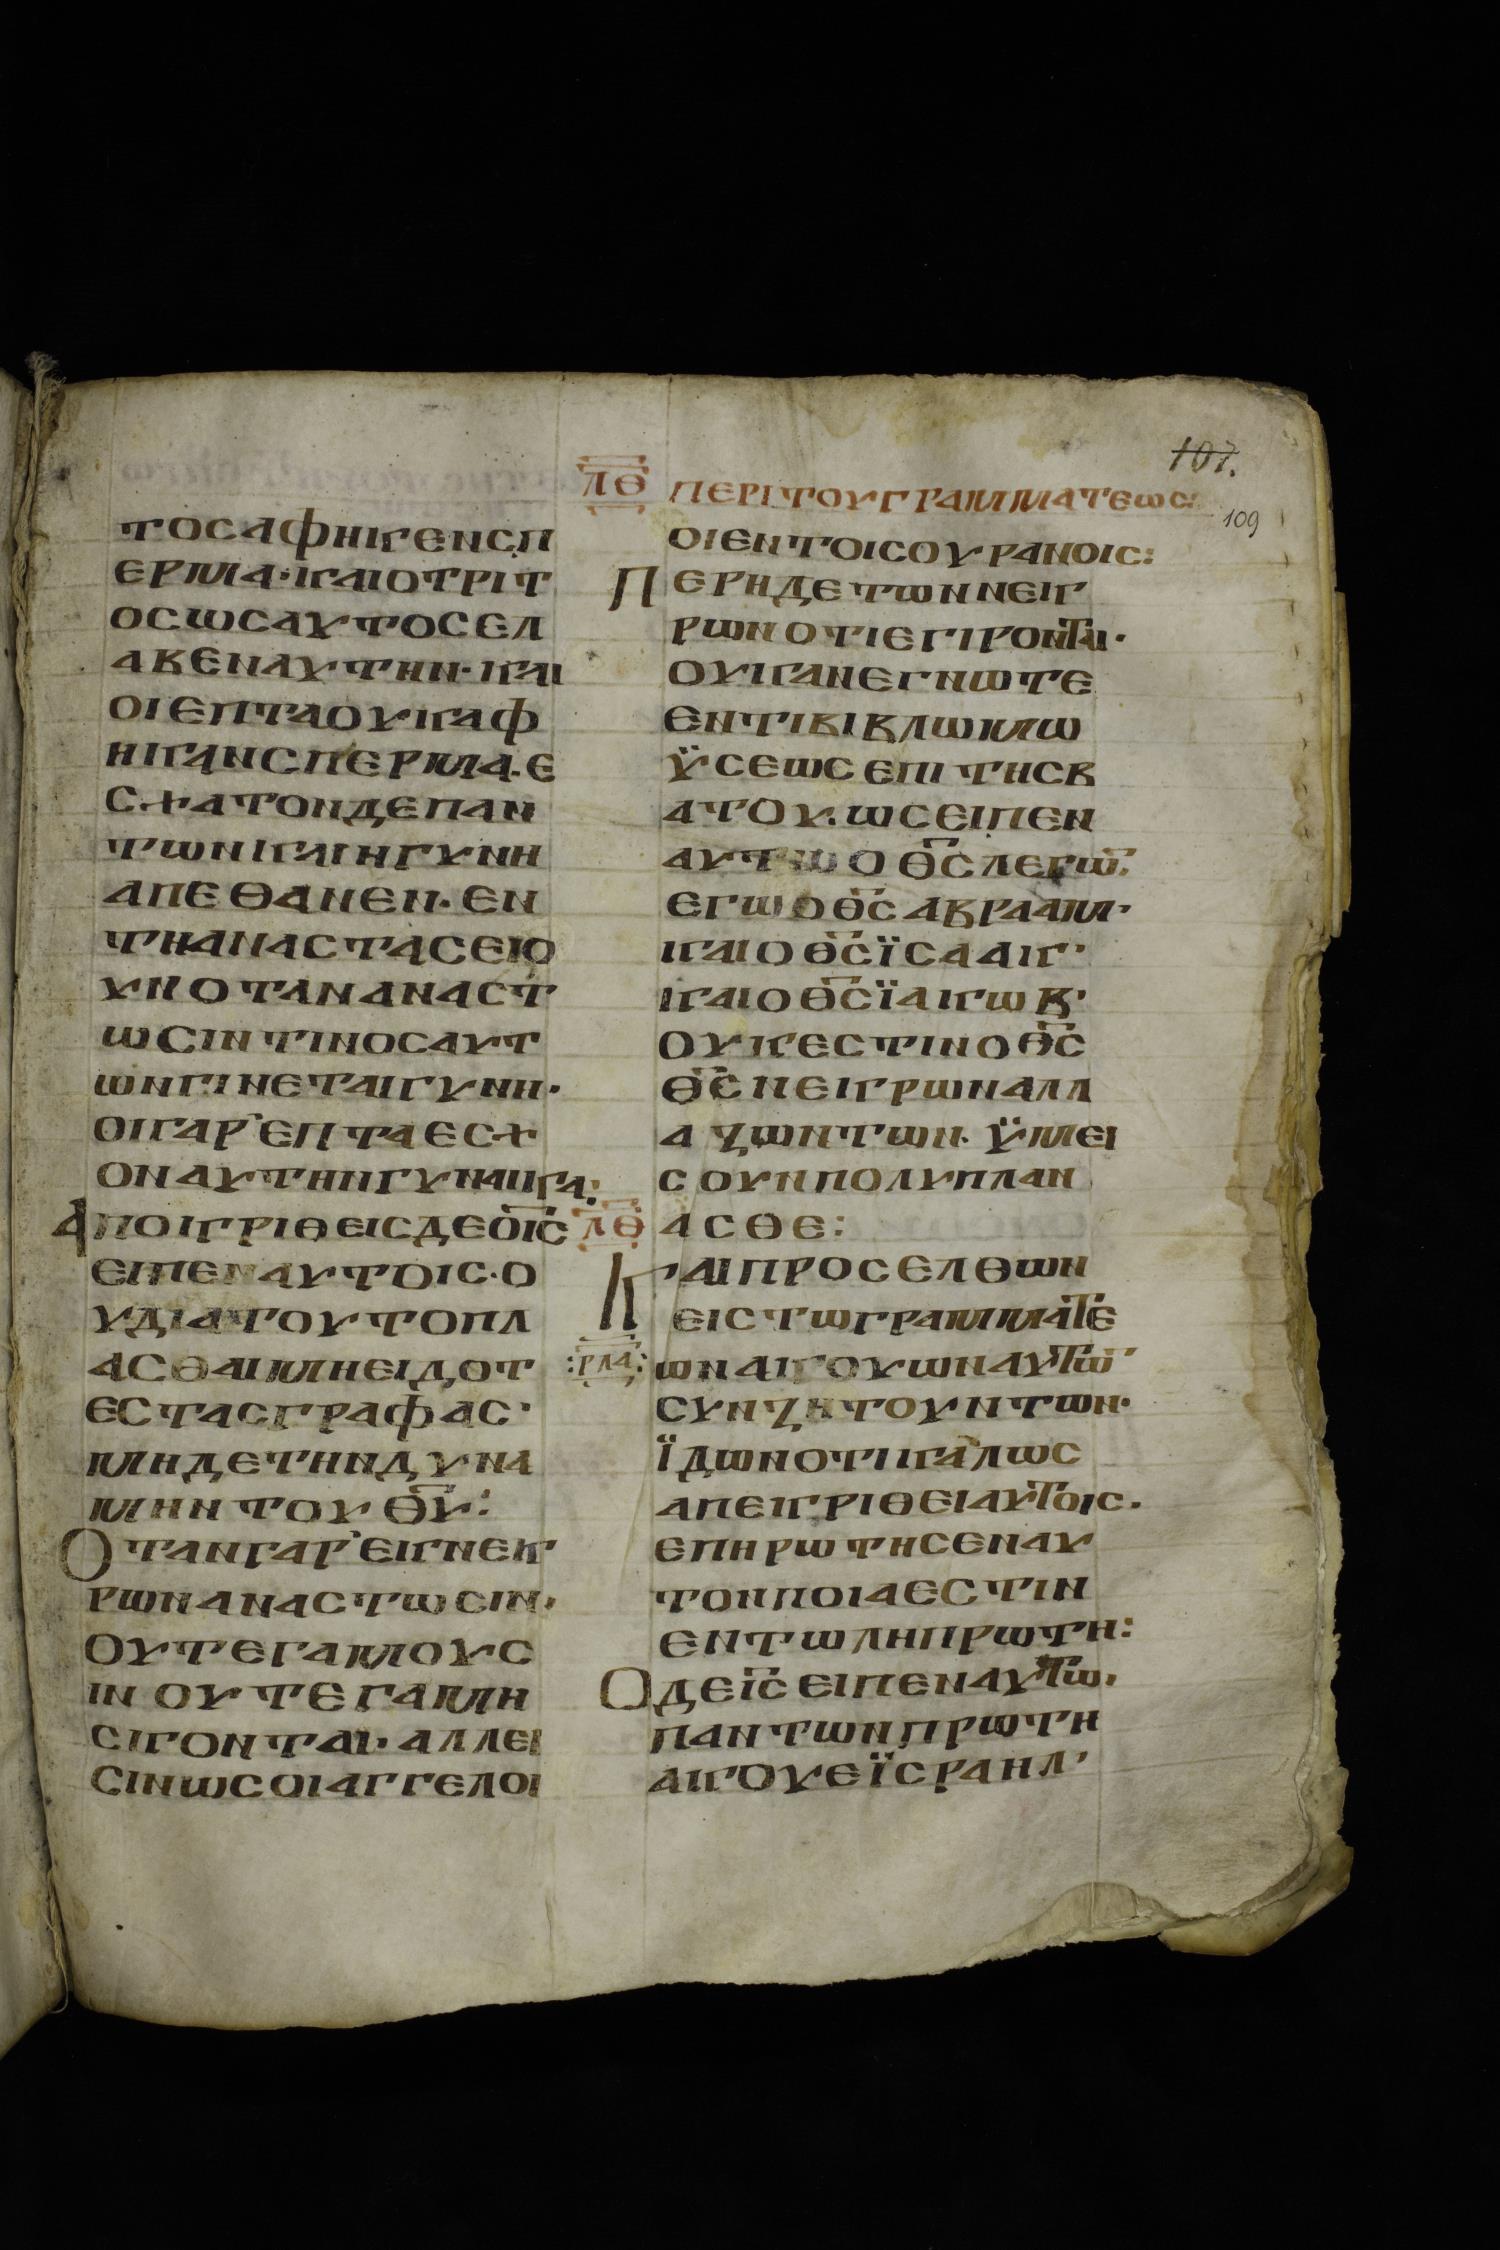 107.
109
ⲖΘ ΠΕΡΙΤΟΥΓΡΑΜΜΑΤΕωС:
ΤΟСΑΦΗΚΕΝСΠ
ΕΡΜΑ·ΚΑΙΟΤΡΙΤ
ΟСωСΑΥΤΟСΕΛ
ΑΒΕΝΑΥΤΗΝ·ΚΑΙ
ΟΙΕΠΤΑΟΥΚΑΦ
ΗΚΑΝСΠΕΡΜΑ·Ε
СΧΑΤΟΝΔΕΠΑΝ
ΤωΝΚΑΙΗΓΥΝΗ
ΑΠΕΘΑΝΕΝ·ΕΝ
ΤΗΑΝΑСΤΑСΕΙΟ
ΥΝΟΤΑΝΑΝΑСΤ
ωСΙΝΤΙΝΟСΑΥΤ
ωΝΓΙΝΕΤΑΙΓΥΝΗ·
ΟΙΓΑΡ'ΕΠΤΑΕСΧ
ΟΝΑΥΤΗΝΓΥΝΑΙΚΑ:
ΑΠΟΚΡΙΘΕΙСΔΕΟΙ̅С̅
ΕΙΠΕΝΑΥΤΟΙС·Ο
ΥΔΙΑΤΟΥΤΟΠΛ
ΑСΘΑΙΜΗΕΙΔΟΤ
ΕСΤΑСΓΡΑΦΑС·
ΜΗΔΕΤΗΝΔΥΝΑ
ΜΗΝΤΟΥΘ̅Υ̅:
ΟΤΑΝΓΑΡ'ΕΚΝΕΚ
ΡωΝΑΝΑСΤωСΙΝ·
ΟΥΤΕΓΑΜΟΥС
ΙΝΟΥΤΕΓΑΜΗ
СΚΟΝΤΑΙ·ΑΛΛΕΙ
СΙΝωСΟΙΑΓΓΕΛΟΙ
ΟΙΕΝΤΟΙСΟΥΡΑΝΟΙС:
ΠΕΡΗΔΕΤωΝΝΕΚ
ΡωΝΟΤΙΕΓΙΡΟΝΤΑΙ·
ΟΥΚΑΝΕΓΝωΤΕ
ΕΝΤΙΒΙΒΛωΜω
ΫСΕωСΕΠΙΤΗСΒ
ΑΤΟΥ·ωСΕΙΠΕΝ
ΑΥΤωΟΘ̅С̅ΛΕΓω̅·
ΕΓωΟΘ̅С̅ΑΒΡΑΑΜ·
ΚΑΙΟΘ̅С̅ΪСΑΑΚ·
ΚΑΙΟΘ̅С̅ΪΑΚωΒ·
ΟΥΚΕСΤΙΝΟΘ̅С̅
Θ̅С̅ΝΕΚΡωΝΑΛΛ
ΑΖωΝΤωΝ·ΫΜΕΙ
СΟΥΝΠΟΛΥΠΛΑΝ
ΛΘ ΑСΘΕ:
ΚΑΙΠΡΟСΕΛΘωΝ
ΕΙСΤωΓΡΑΜΜΑΤΕ
:ΡΛΑ: ωΝΑΚΟΥωΝΑΥΤω̅
СΥΝΖΗΤΟΥΝΤωΝ·
ΪΔωΝΟΤΙΚΑΛωС
ΑΠΕΚΡΙΘΕΙΑΥΤΟΙС·
ΕΠΗΡωΤΗСΕΝΑΥ
ΤΟΝΠΟΙΑΕСΤΙΝ
ΕΝΤωΛΗΠΡωΤΗ:
ΟΔΕΙ̅С̅ΕΙΠΕΝΑΥΤω·
ΠΑΝΤωΝΠΡωΤΗ
ΑΚΟΥΕΪСΡΑΗΛ·